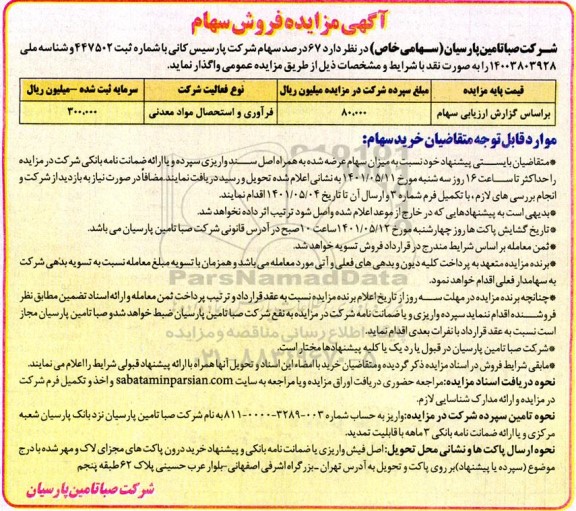 آگهی مزایده فروش سهام
شرکت صبا تامین پارسیان (سهامی خاص) در نظر دارد ۶۷ درصد سهام شرکت پارسیس کانی با شماره ثبت ۴۴۷۵۰۲ و شناسه ملی
۱۴۰۰۳۸۰۳۹۲۸ را به صورت نقد با شرایط و مشخصات ذیل از طریق مزایده عمومی واگذار نماید.
قیمت پایه مزایده	مبلغ سپرده شرکت در مزایده میلیون ریال	نوع فعالیت شرکت	سرمایه ثبت شده -میلیون ریال
براساس گزارش ارزیابی سهام	۸۰.۰۰۰	فرآوری و استحصال مواد معدنی	۳۰۰.۰۰۰
موارد قابل توجه متقاضیان خرید سهام:
*متقاضیان بایستی پیشنهاد خود نسبت به میزان سهام عرضه شده به همراه اصل سند واریزی سپرده و یا ارائه ضمانت نامه بانکی شرکت در مزایده
را حداکثر تا ساعت ۱۶ روز سه شنبه مورخ ۱۴۰۱/۰۵/۱۱ به نشانی اعلام شده تحویل و رسید دریافت نمایند. مضافاً در صورت نیاز به بازدید از شرکت و
انجام بررسی های لازم ، با تکمیل فرم شماره ۳ و ارسال آن تا تاریخ ۱۴۰۱/۰۵/۰۴ اقدام نمایند.
*بدیهی است به پیشنهادهایی که در خارج از موعد اعلام شده واصل شود ترتیب اثر داده نخواهد شد.
*تاریخ گشایش پاکت ها روز چهارشنبه مورخ ۱۴۰۱/۰۵/۱۲ ساعت ۱۰ صبح در آدرس قانونی شرکت صبا تامین پارسیان می باشد.
*ثمن معامله بر اساس شرایط مندرج در قرارداد فروش تسویه خواهد شد.
*برنده مزایده متعهد به پرداخت کلیه دیون و بدهی های فعلی و آتی مورد معامله می باشد و همزمان با تسویه مبلغ معامله نسبت به تسویه بدهی شرکت
به سهامدار فعلی اقدام خواهد نمود.
*چنانچه برنده مزایده در مهلت سه روز از تاریخ اعلام برنده مزایده نسبت به عقد قرارداد و ترتیب پرداخت ثمن معامله و ارائه اسناد تضمین مطابق نظر
فروشنده اقدام ننماید سپرده واریزی و یا ضمانت نامه شرکت در مزایده به نفع شرکت صبا تامین پارسیان ضبط خواهد شد و صبا تامین پارسیان مجاز
است نسبت به عقد قرارداد با نفرات بعدی اقدام نماید.
*شرکت صبا تامین پارسیان در قبول یا رد یک یا کلیه پیشنهادها مختار است.
*مابقی شرایط فروش در اسناد مزایده ذکر گردیده و متقاضیان خرید با امضاء این اسناد و تحویل آنها همراه با ارائه پیشنهاد قبولی شرایط را اعلام می نمایند.
نحوه دریافت اسناد مزایده: مراجعه حضوری دریافت اوراق مزایده و یا مراجعه به سایت sabataminparsian.com و اخذ و تکمیل فرم شرکت
در مزایده و ارائه مدارک شناسایی لازم.
نحوه تامین سپرده شرکت در مزایده: واریز به حساب شماره ۰۰۳-۳۲۸۹-۰۰۰۰-۸۱۱ به نام شرکت صبا تامین پارسیان نزد بانک پارسیان شعبه
مرکزی و یا ارائه ضمانت نامه بانکی ۳ ماهه با قابلیت تمدید.
نحوه ارسال پاکت ها و نشانی محل تحویل: اصل فیش واریزی یا ضمانت نامه بانکی و پیشنهاد خرید درون پاکت های مجزای لاک و مهر شده با درج
موضوع (سپرده یا پیشنهاد) بر روی پاکت و تحویل به آدرس تهران - بزرگراه اشرفی اصفهانی-بلوار عرب حسینی پلاک ۶۲ طبقه پنجم
شرکت صبا تامین پارسیان
ParsNamadData